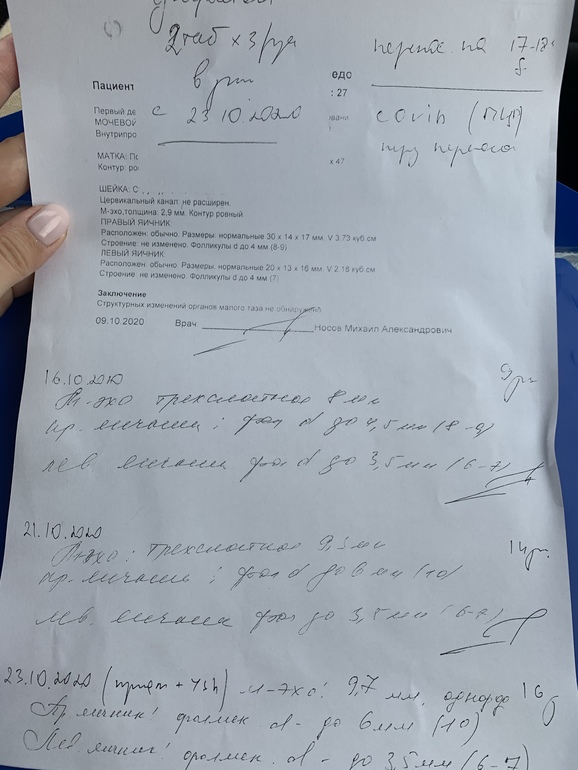 2таб х 3 р/д
перенос на 17-18
Пациент
едо
: 27
Первый де
с 23.10.2020
covid (ПЦР)
МОЧЕВОЙ
Внутрипро
перед переносом
МАТКА: По
х 47
Контур: ро
ШЕЙКА: С
Цервикальный канал: не расширен.
М-эхо,толщина: 2,9 мм. Контур ровный
ПРАВЫЙ ЯИЧНИК
Расположен: обычно. Размеры: нормальные 30 х 14 х 17 мм. V 3.73 куб.см
Строение: не изменено. Фолликулы d до 4 мм (8-9)
ЛЕВЫЙ ЯИЧНИК
Расположен: обычно. Размеры: нормальные 20 х 13 х 16 мм. V 2.18 куб.см
Строение: не изменено. Фолликулы d до 4 мм (7)
Заключение
Структурных изменений органов малого таза не обнаружено
09.10.2020 Врач Носов Михаил Александрович
16.10.2020
М-эхо трехслойное 8 мм
пр. яичник: фол d до 4,5 мм (8-9)
лев. яичник фол d до 3,5 мм (6-7)
21.10.2020
М-эхо: трехслойное 9,5 мм
пр. яичник: фол d до 6 мм (10)
лев. яичник фол до 3,5 мм (6-7)
23.10.2020 м-эхо: 9,7 мм, 16
Пр. яичник: фоллик. d - до 6 мм (10)
Лев. яичник: фоллик. d - до 3,5 мм (6-7)